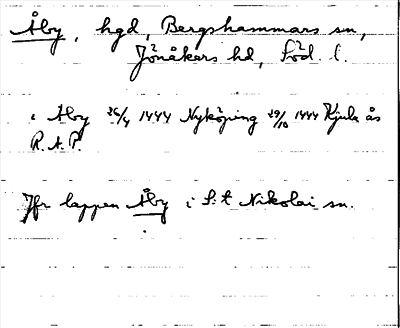 Åby, hgd, Bergshammars sn,
Jönåkers hd, Söd. l.
i Åby 26/4 1444 Nyköping 29/10 1444 Kjula ås
R.A.P.
Jfr lappen Åby i S:t Nikolai sn.